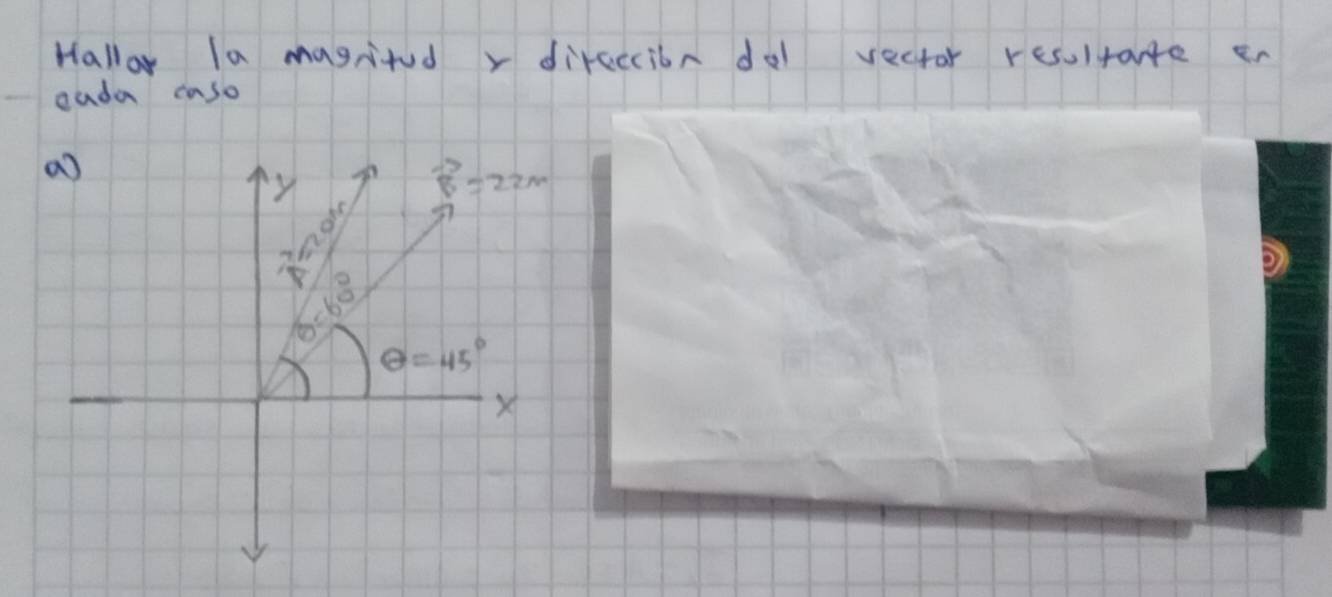 Hallar la magnitud y dirección del vector resultante en
cada caso
a)
y
B = 22m
A = 20m
θ = 60°
θ = 45°
x